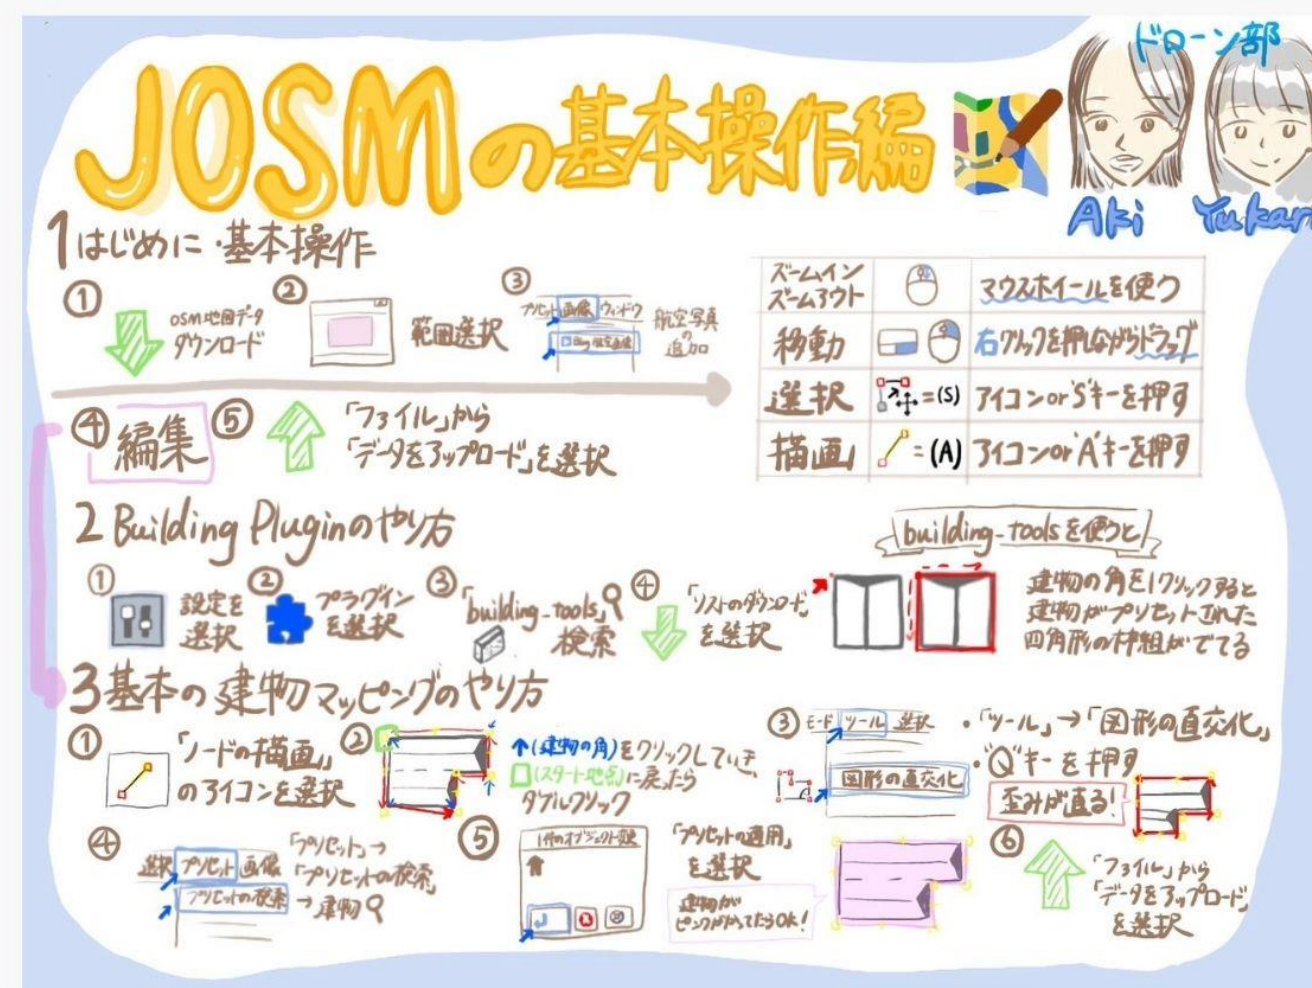 ドローン部
JOSMの基本操作編
Aki
Yukari
1はじめに・基本操作
①
OSM地図データ
ダウンロード
②
範囲選択
③
プリセット 画像 ウィンドウ
Bing航空画像
航空写真
の
追加
④
編集
⑤
「ファイル」から
「データをアップロード」を選択
ズームイン
ズームアウト
マウスホイールを使う
移動
右クリックを押しながらドラッグ
選択
=(S)
アイコンor'S'キーを押す
描画
=(A)
アイコンor'A'キーを押す
2 Building Pluginのやり方
①
設定を
選択
②
プラグイン
を選択
③
「building-tools」
検索
④
「リストのダウンロード」
を選択
building-toolsを使うと
建物の角を1クリックすると
建物がプリセットされた
四角形の枠組がでてる
3基本の建物マッピングのやり方
①
「ノードの描画」
のアイコンを選択
②
↑(建物の角)をクリックしていき、
□(スタート地点)に戻ったら
ダブルクリック
③
モード ツール 選択
図形の直交化
・「ツール」→「図形の直交化」
・"Q"キーを押す
歪みが直る!
④
選択 プリセット 画像
プリセットの検索
「プリセット」→
「プリセットの検索」
→建物
⑤
1件のオブジェクト変更
「プリセットの適用」
を選択
建物が
ピンクがかってたらOK!
⑥
「ファイル」から
「データをアップロード」
を選択